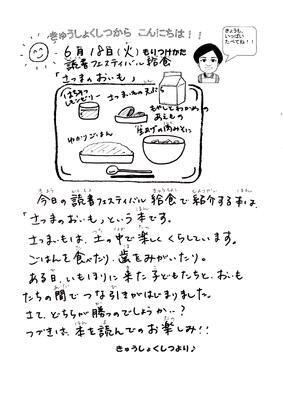 きゅうしょくしつから こんにちは！！
きょうも、
いっぱい
たべてね！！
6月18日(火) もりつけかた
読書フェスティバル給食
「さつまのおいも」
はちみつ
レモンゼリー
さつまいもの天ぷら
もやしとわかめの
あえもの
ゆかりごはん
生あげの肉みそに
今日の読書フェスティバル給食で紹介する本は、
「さつまのおいも」という本です。
さつまいもは、土の中で楽しくくらしています。
ごはんを食べたり、歯をみがいたり。
ある日、いもほりに来た子どもたちと、おいも
たちの間でつな引きがはじまりました。
さて、どちらが勝つのでしょうか‥？
つづきは、本を読んでのお楽しみ！！
きゅうしょくしつより♪